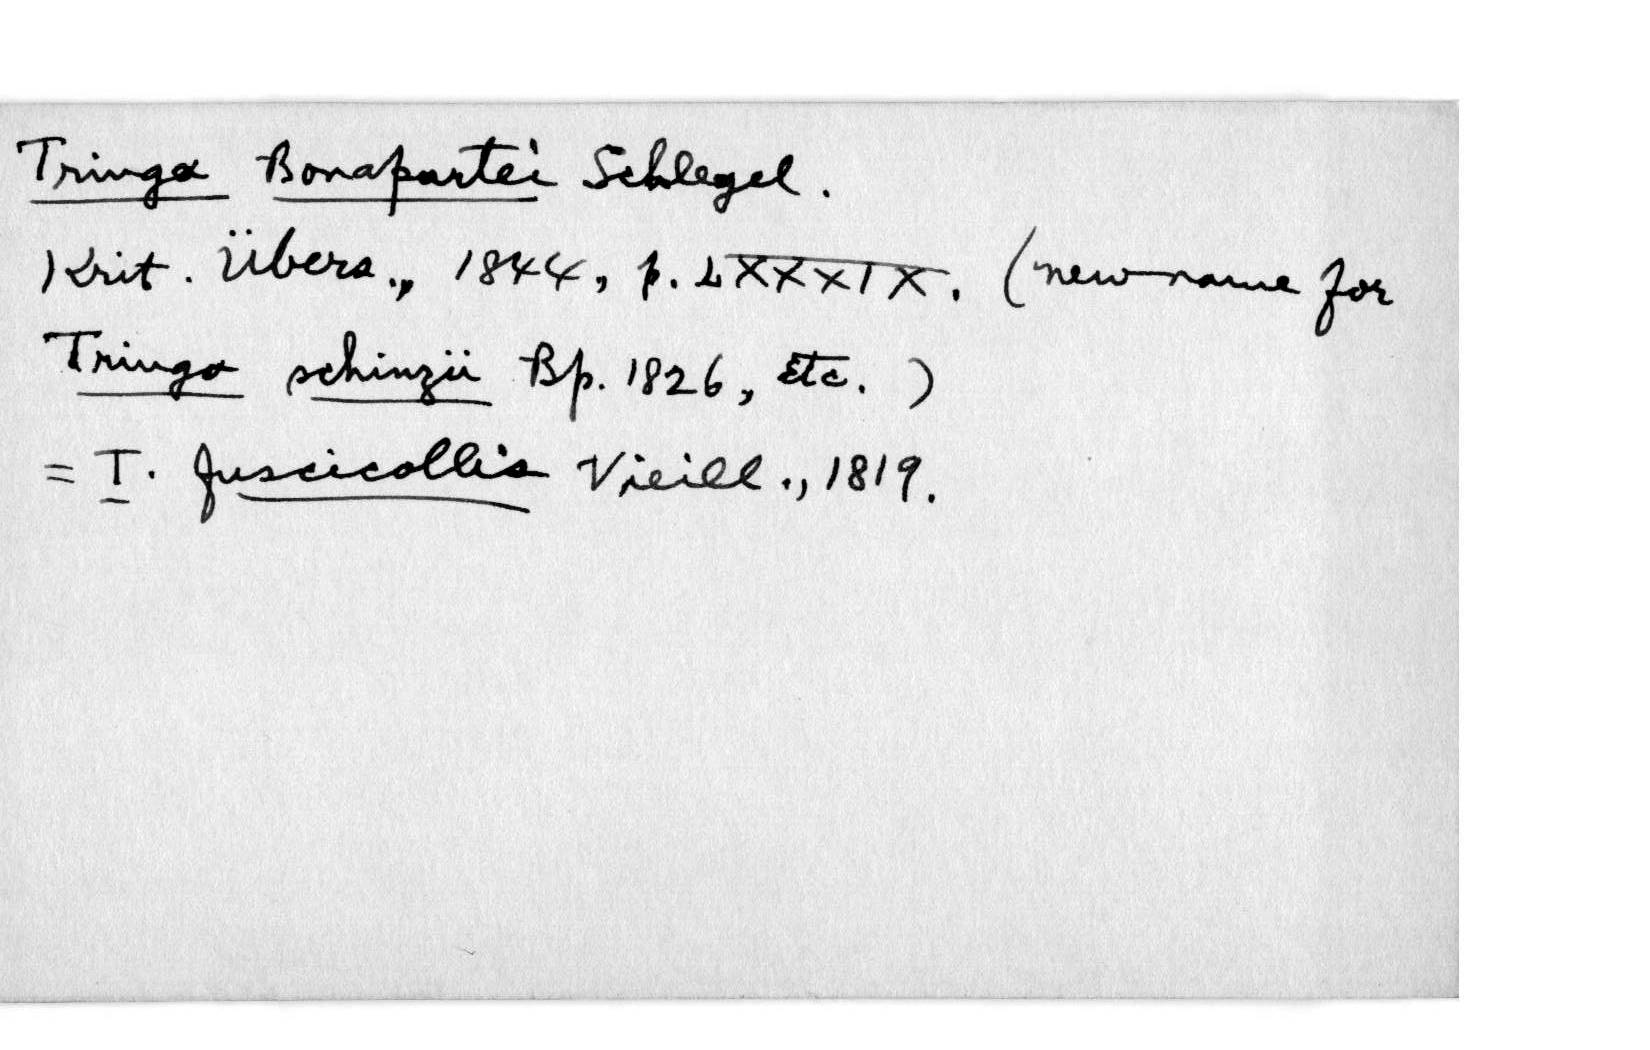 Tringa Bonapartei Schlegel.
Krit. Übers., 1844, p. LXXXIX. (new name for
Tringa schinzii Bp. 1826, Etc.)
= T. fuscicollis Vieill., 1819.